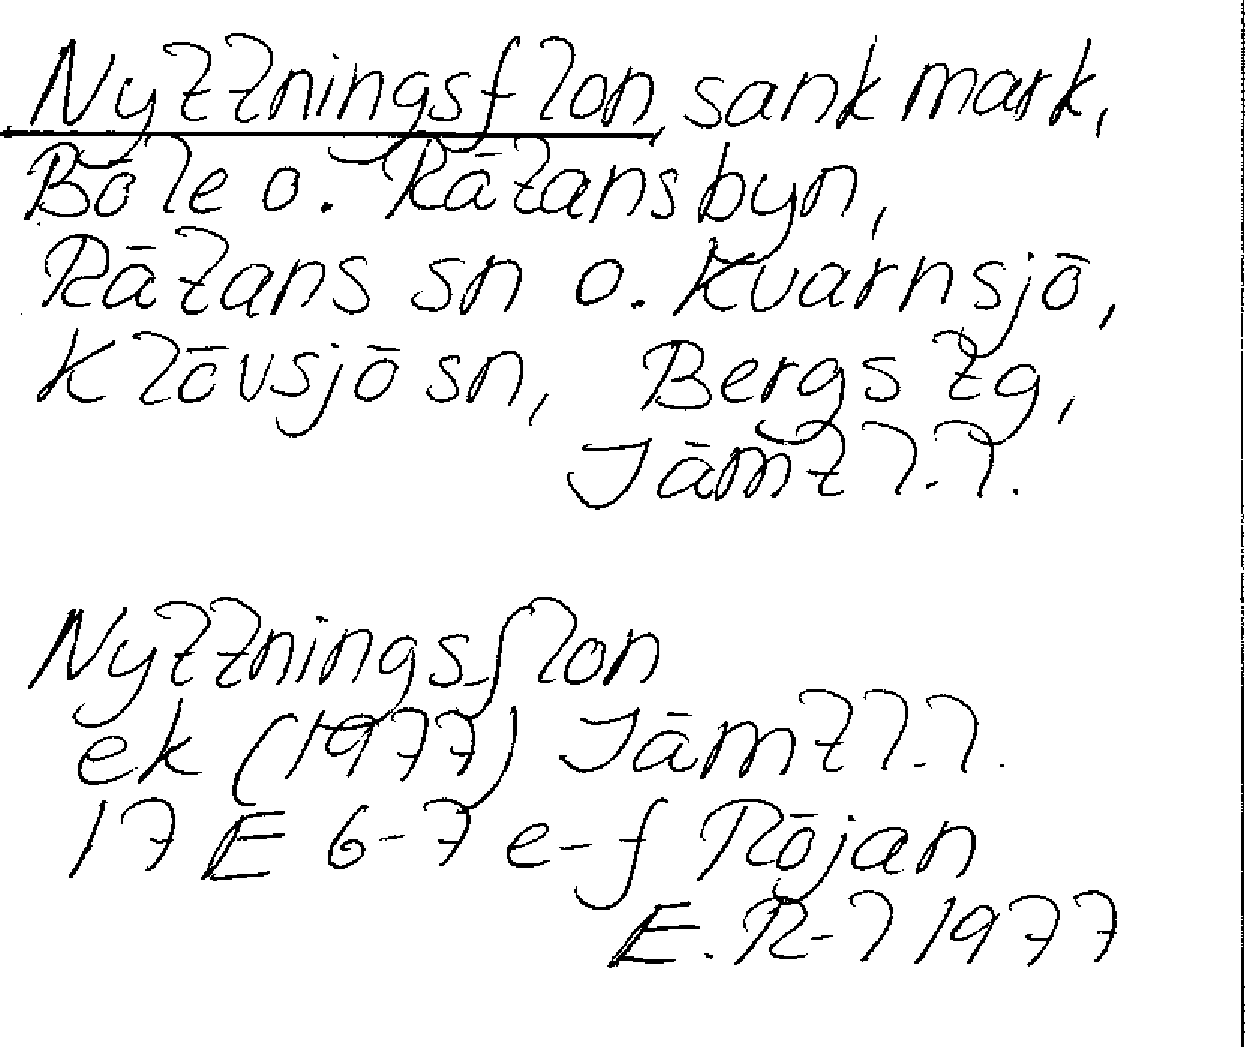 Nyttningsflon, sankmark,
Böle o. Rätansbyn,
Rätans sn o. Kvarnsjö,
Klövsjö sn, Bergs tg,
Jämtl.l.
Nyttningsflon
ek (1977) Jämtl.l.
17 E 6-7 e-f Röjan
E.R-l 1977